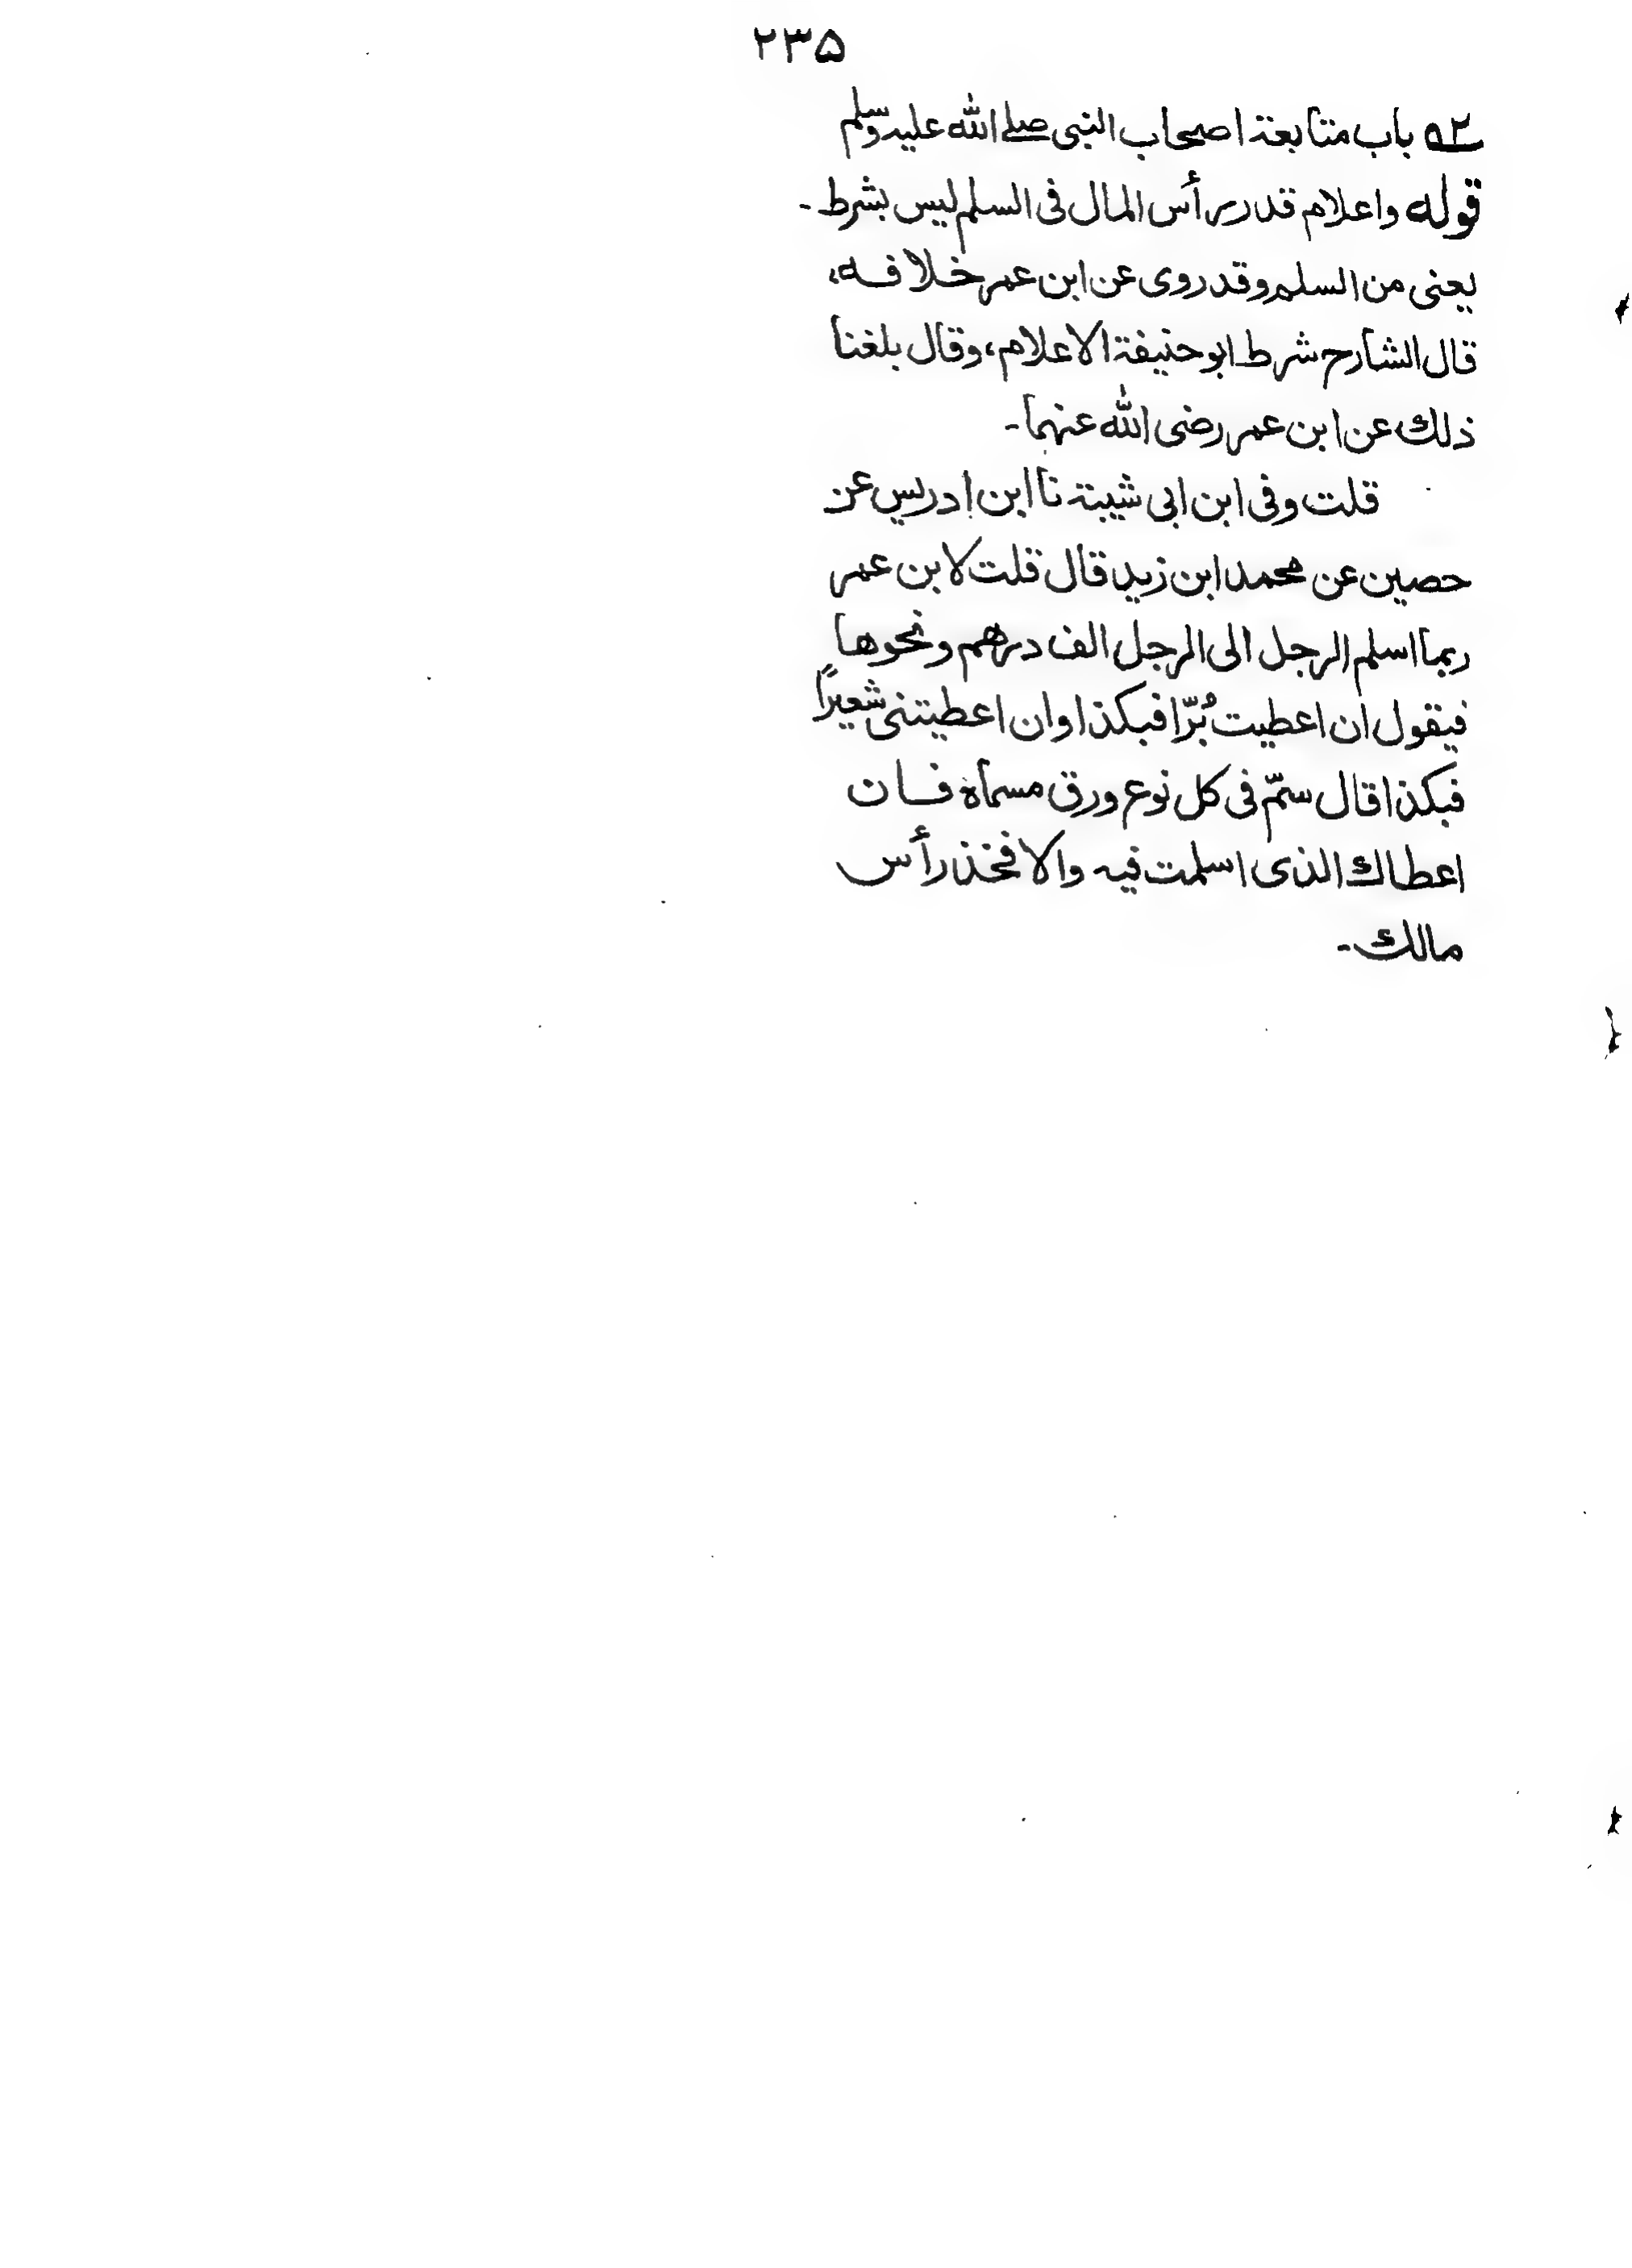 ۲۳۵
۵۲ باب متابعة اصحاب النبی صلے اللّٰه علیه وسلّم
قوله واعلام قدر رأس المال فی السلم لیس بشرط۔
یعنی من السلم وقد روی عن ابن عمر خلافه،
قال الشارح شرط ابو حنیفة الاعلام، وقال بلغنا
ذلك عن ابن عمر رضی اللّٰه عنهما۔
قلت وفی ابن ابی شیبة نا ابن ادریس عن
حصین عن محمد ابن زید قال قلت لابن عمر
ربما اسلم الرجل الی الرجل الف درهم ونحوها
فیقول ان اعطیت بُرّا فبکذا وان اعطیتنی شعیراً
فبکذا قال سمّ فی کل نوع ورق مسماة فان
اعطاك الذی اسلمت فیه والا فخذ رأس
مالك۔